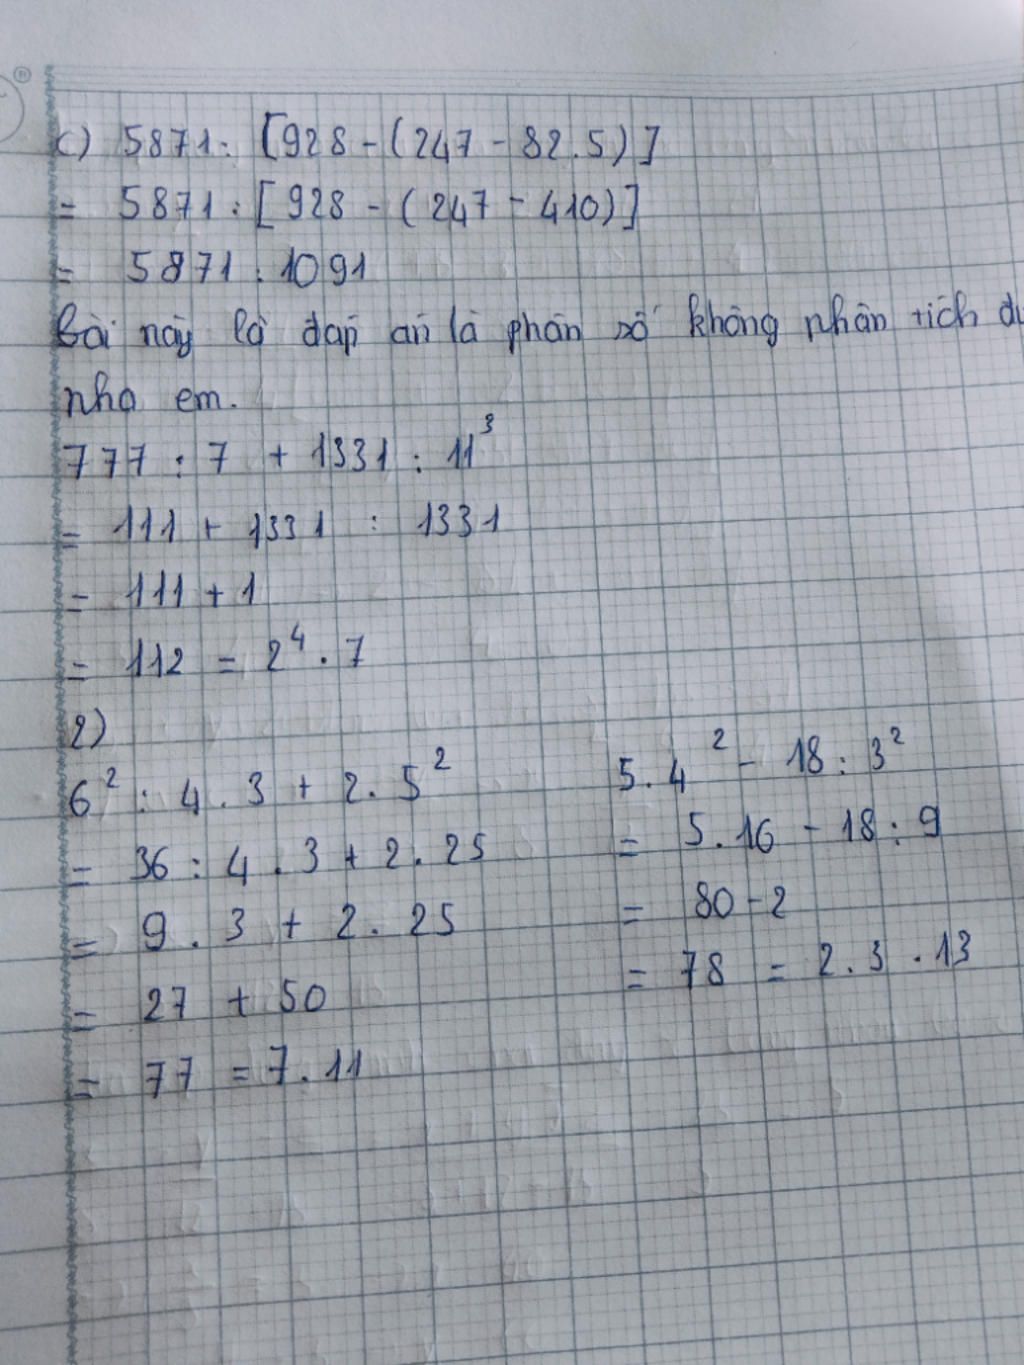 c) 5871 : [928 - (247 - 82.5)]
= 5871 : [928 - (247 - 410)]
= 5871 : 1091
Bài này là đáp án là phân số không phân tích
nha em.
777 : 7 + 1331 : 11³
= 111 + 1331 : 1331
= 111 + 1
= 112 = 2⁴ . 7
2)
6² : 4 . 3 + 2 . 5²
= 36 : 4 . 3 + 2 . 25
= 9 . 3 + 2 . 25
= 27 + 50
= 77 = 7 . 11
5 . 4² - 18 : 3²
= 5 . 16 - 18 : 9
= 80 - 2
= 78 = 2 . 3 . 13